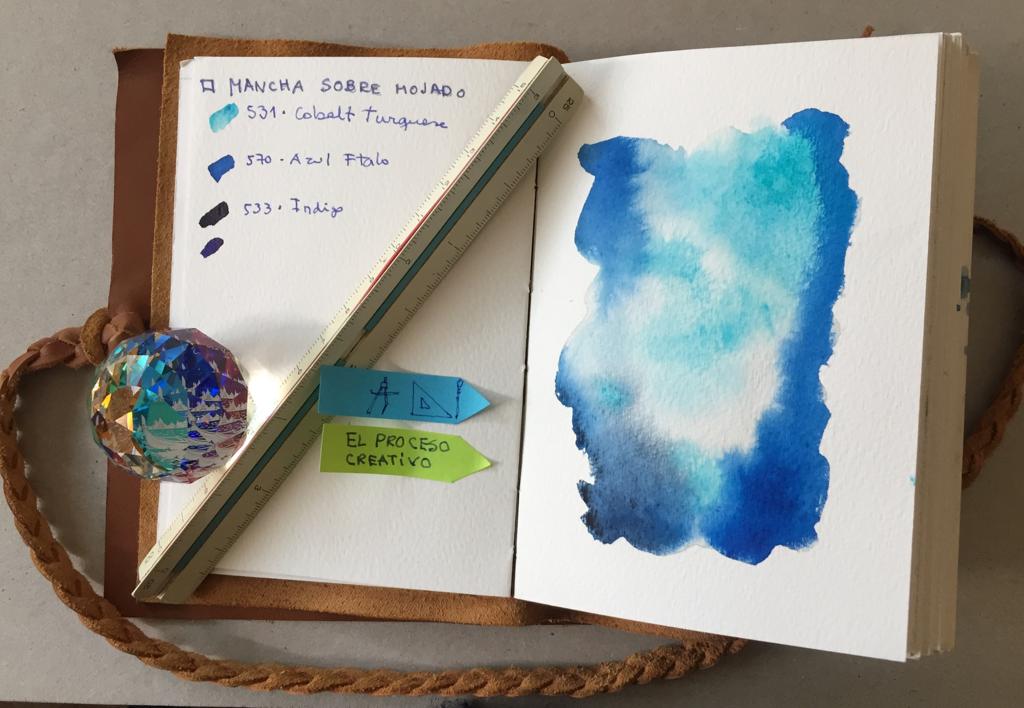 MANCHA SOBRE MOJADO
531 · Cobalt Turquese
570 · Azul Ftalo
533 · Indigo
EL PROCESO
CREATIVO